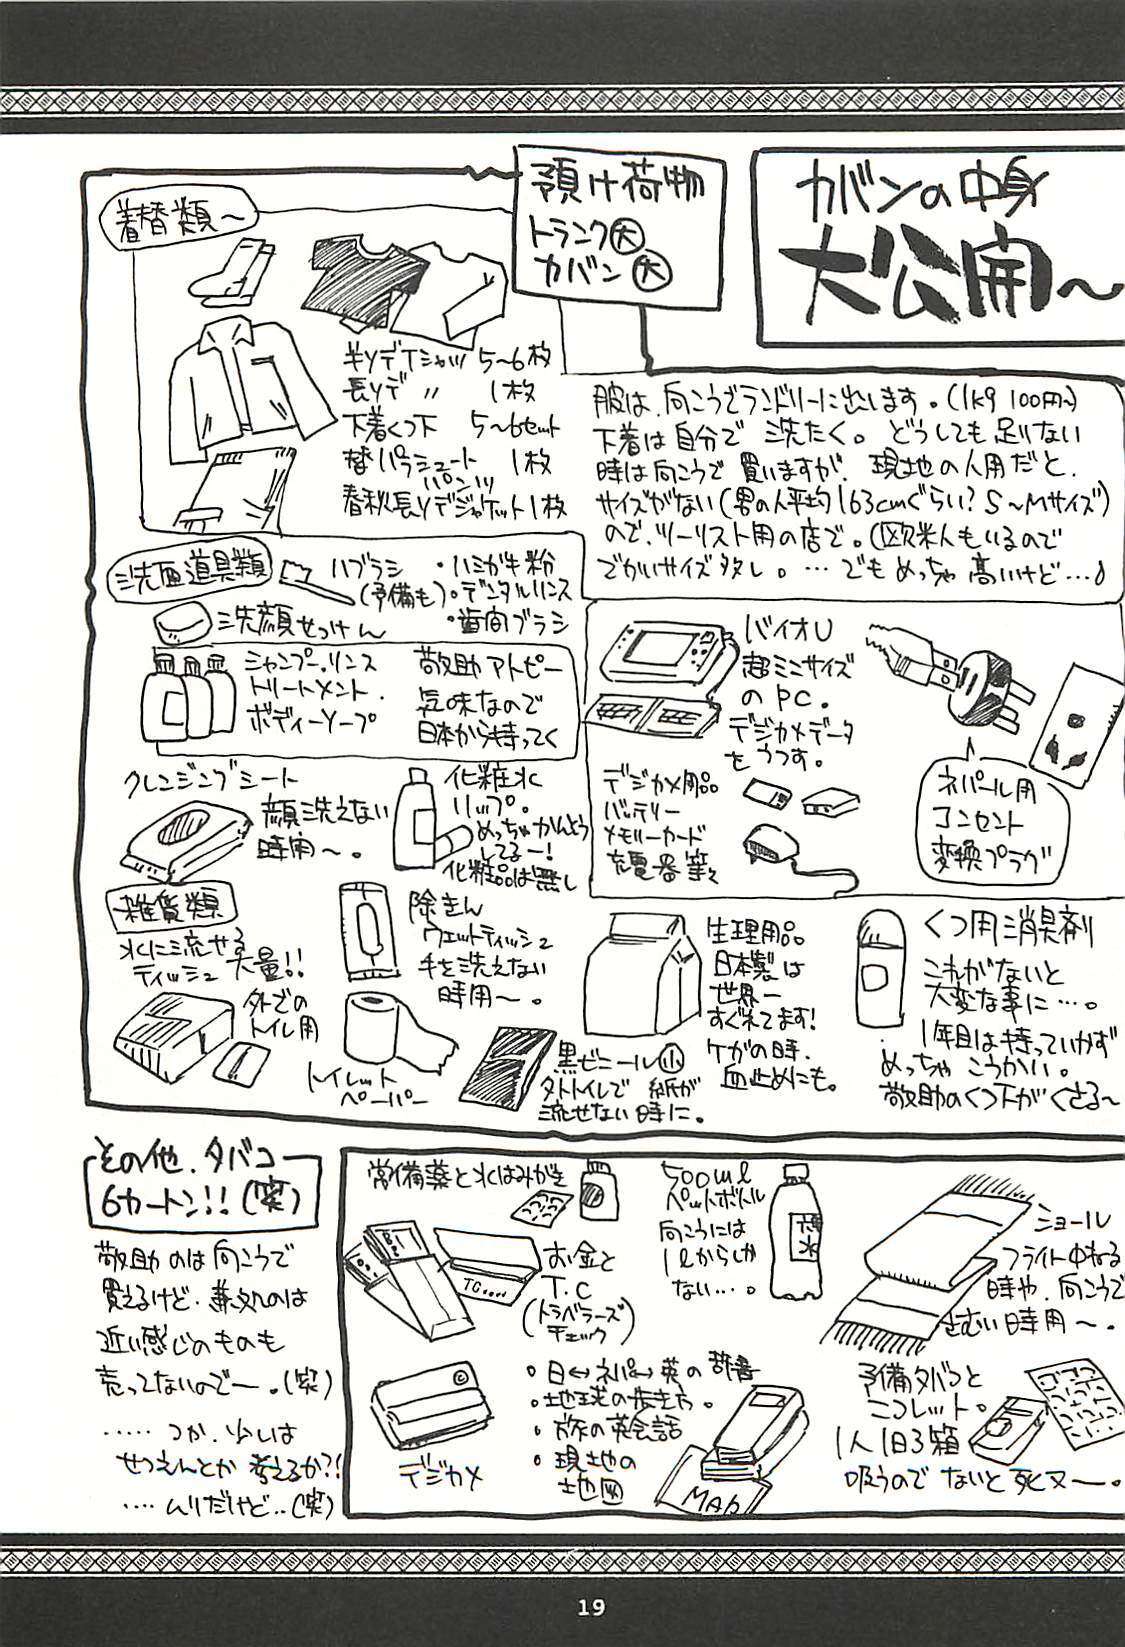 カバンの中身
大公開〜
預け荷物
トランク大
カバン大
着替類〜
半ソデTシャツ 5〜6枚
長ソデ 〃 1枚
下着くつ下 5〜6セット
替パラシュートパンツ 1枚
春秋長ソデジャケット1枚
服は、向こうでランドリーに出します。(1kg 100円〜)
下着は自分で洗たく。どうしても足りない
時は向こうで買いますが、現地の人用だと、
サイズがない(男の人平均163cmぐらい?S〜Mサイズ)
ので、ツーリスト用の店で。(欧米人もいるので
でかいサイズ多し。…でもめっちゃ高いけど…♪
洗面道具類
ハブラシ
(予備も)
・ハミガキ粉
・デンタルリンス
・歯間ブラシ
洗顔せっけん
シャンプー、リンス
トリートメント、
ボディーソープ
敬助アトピー
気味なので
日本から持ってく
クレンジングシート
顔洗えない
時用〜。
化粧水
リップ。
めっちゃかんたん
してるー!
化粧品は無し
バイオU
超ミニサイズ
のPC。
デジカメデータ
をうつす。
デジカメ用品
バッテリー
メモリーカード
充電器等々
ネパール用
コンセント
変換プラグ
雑貨類
水に流せる
ティッシュ大量!!
外での
トイレ用
除きん
ウェットティッシュ
手を洗えない
時用〜。
トイレット
ペーパー
黒ビニール小
外トイレで紙が
流せない時に。
生理用品
日本製は
世界一
すぐれてます!
ケガの時、
血止めにも。
くつ用消臭剤
これがないと
大変な事に…。
1年目は持っていかず
めっちゃこうかい。
敬助のくつ下がくさる〜
その他、タバコ
6カートン!!(笑)
敬助のは向こうで
買えるけど、兼処のは
近い感じのものも
売ってないのでー。(笑)
……つか、少しは
せつえんとか考えるか?!
……ムリだけど..(笑)
常備薬と水はみがき
お金と
T.C
(トラベラーズ
チェック)
T.C
500ml
ペットボトル
向こうには
1lからしか
ない…。
水
ショール
フライト中ねる
時や、向こうで
さむい時用〜。
デジカメ
・日↔ネパ↔英の辞書
・地球の歩き方。
・旅の英会話
・現地の
地図
MAP
予備タバコと
ニコレット。
1人1日3箱
吸うのでないと死ヌ〜。
19